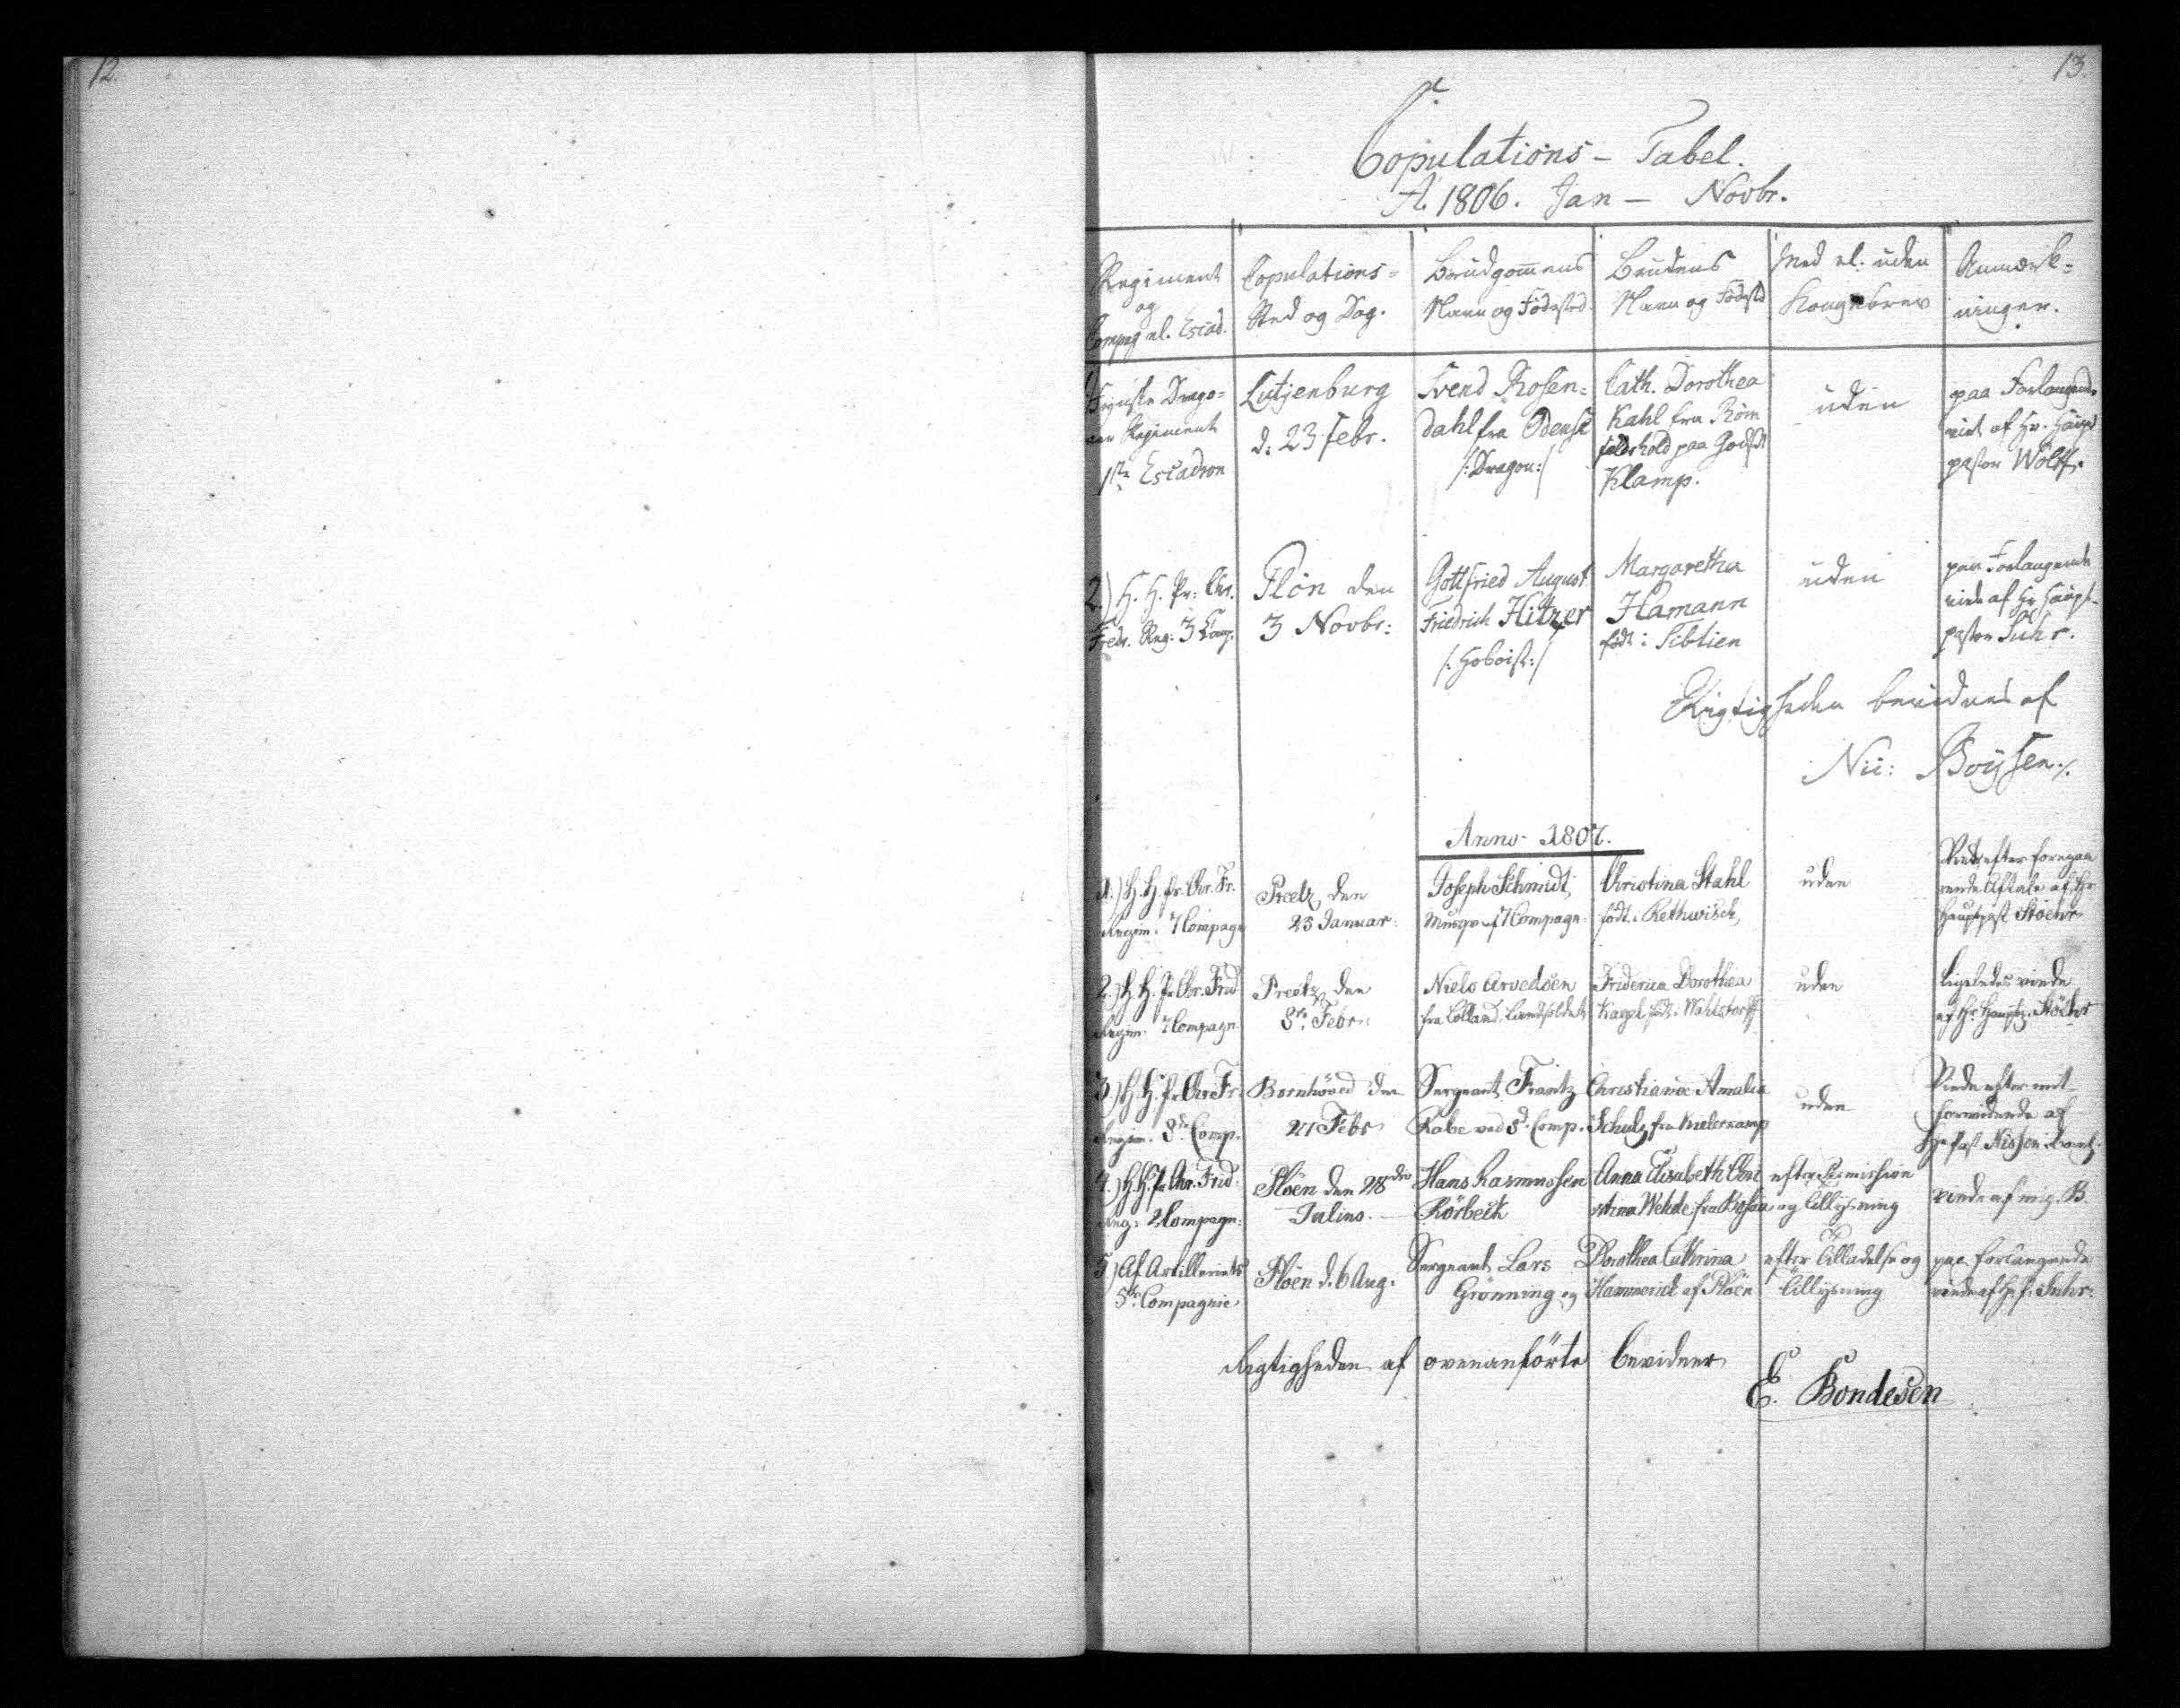 12.
13.
Copulations - Tabel.
A. 1806. Jan - Novbr.
Regiment
og
Compag el. Escad.
Copulations-
Sted og Dag.
Brudgom̄ens
Navn og Fødested
Brudens
Navn og Fødested
Med el: uden
Kongebrev
Anmærk-
ninger.
Fynske Drago-
ner Regiment
1ste Escadron
Lütjenburg
d: 23 Febr.
Svend Rosen-
dahl fra Odense
/: Dragon :/
Cath. Dorothea
Kahl fra
paa Godset
Klamp.
uden
paa Forlangende
viet af Hr. Haupt
pastor Wolff.
2.) H. H. Pr: Chr.
Fredr. Reg: 3 Comp.
Plön den
3 Novbr:
Gottfried August
Friedrich Hitzer
/: Hoboist :/
Margaretha
Hamann
født i Siblien
uden
paa Forlangende
viede af Hr Haupt-
pastor Suhr.
Rigtigheden bevidnes af
Nic: Boysen
Anno 1807.
1.) H. H. Pr. Chr. Fr.
Regim. 7 Compagn
Preetz den
25 Januar.
Joseph Schmidt,
Musqv. af 7 Compagn.
Christina Stahl
født i Rethwisch,
uden
Viede efter foregaa
ende Aftale af Hr
Hauptpast Stoehr
2.) H. H. Pr. Chr. Frid
Regim. 7 Compagn.
Preetz den
8de Febr:
Niels Arvedsen
fra Lolland, Landsoldat
Friderica Dorothea
Kagel født i Wahlstorff
uden
ligeledes viede
af Hr Hauptp. Stöehr
3.) H. H. Pr. Chr. Fr.
Regim. 8de Comp.
Bornhöved den
21 Febr
Sergeant Frantz
Rabe ved 8d Comp.
Christiana Amalia
Schulz fra
uden
Viede efter
af
Hr Past Nissen
4.) H. H. Pr. Chr. Frid.
Reg: 2 Compagn:
Ploen den 28den
Julius
Hans Rasmussen
Rörbeck
Anna Elisabeth Chri
stina Wehde fra Bosau
efter Permission
og Tillysning
viede af mig. B.
5.) Af Artilleriets
5te Compagnie
Ploen d. 6 Aug.
Sergeant Lars
Grönning og
Dorothea Cathrina
Hammerich af Ploen
efter Tilladelse og
Tillysning
paa forlangende
viede af Hr. P. Suhr.
Rigtigheden af ovenanförte bevidner
E. Bondesen